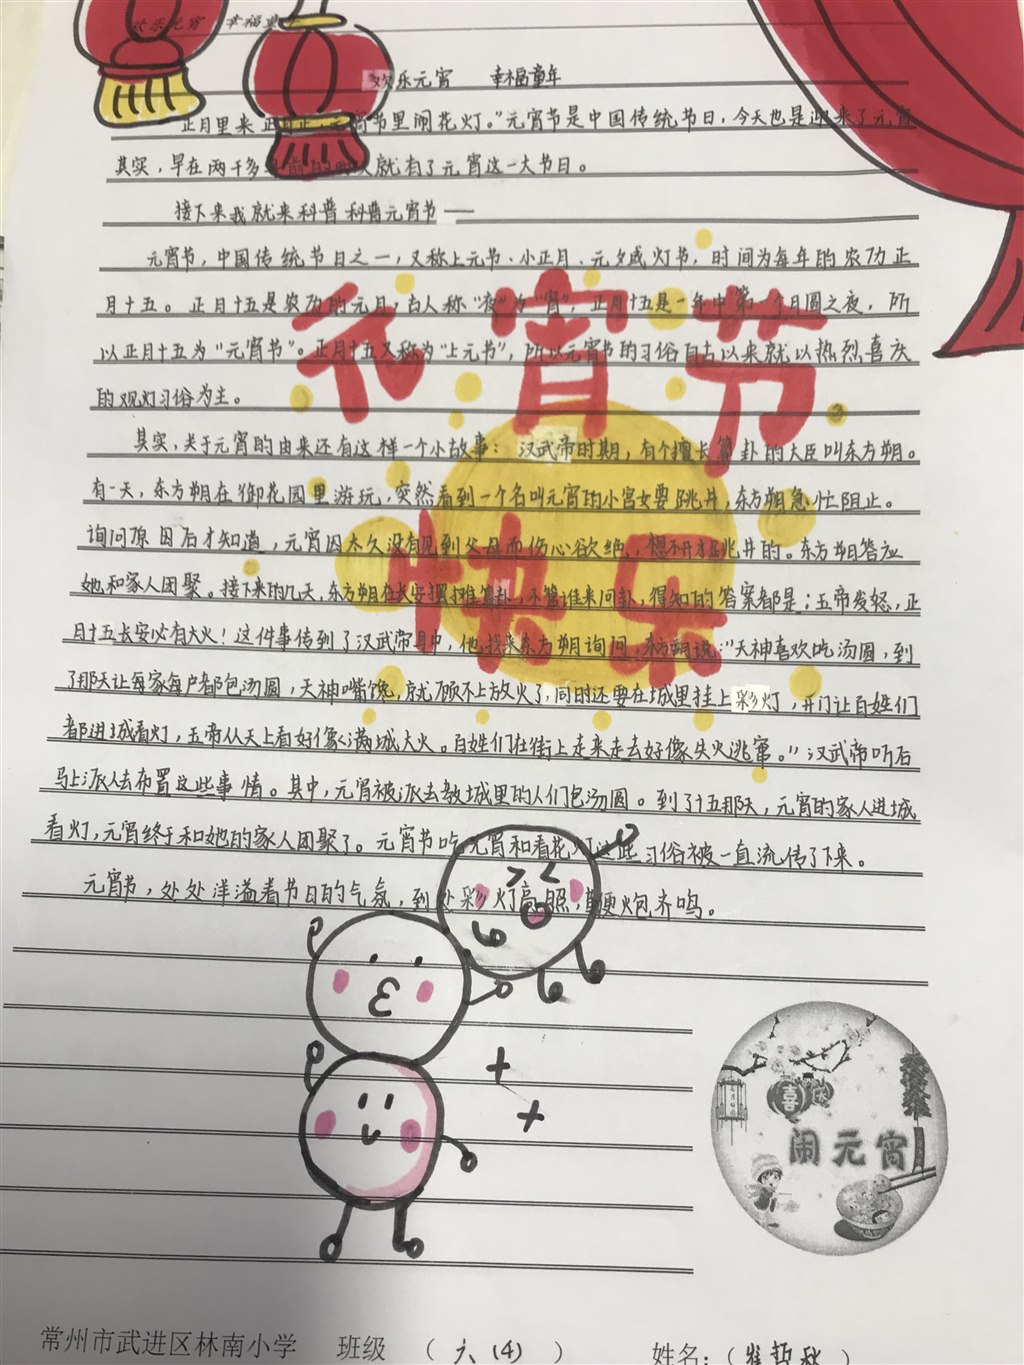 欢乐元宵 幸福童
欢乐元宵 幸福童年
“正月里来正月正,元宵节里闹花灯。”元宵节是中国传统节日,今天也是迎来了元宵
其实,早在两千多年前的西汉就有了元宵这一大节日。
接下来我就来科普科普元宵节——
元宵节,中国传统节日之一,又称上元节、小正月、元夕或灯节,时间为每年的农历正
月十五。正月十五是农历的元月,古人称“夜”为“宵”,正月十五是一年中第一个月圆之夜,所
以正月十五为“元宵节”。正月十五又称为“上元节”,所以元宵节的习俗自古以来就以热烈喜庆
的观灯习俗为主。
其实,关于元宵的由来还有这样一个小故事:汉武帝时期,有个擅长算卦的大臣叫东方朔。
有一天,东方朔在御花园里游玩,突然看到一个名叫元宵的小宫女要跳井,东方朔急忙阻止。
询问原因后才知道,元宵因太久没有见到父母而伤心欲绝,想不开才跳井的。东方朔答应
她和家人团聚。接下来的几天,东方朔在长安摆摊算卦,不管谁来问卦,得知的答案都是:五帝发怒,正
月十五长安必有大火!这件事传到了汉武帝耳中,他找来东方朔询问,东方朔说:“天神喜欢吃汤圆,到
了那天让每家每户都包汤圆,天神嘴馋,就顾不上放火了,同时还要在城里挂上彩灯,开门让百姓们
都进城看灯,五帝从天上看好像满城大火。百姓们在街上走来走去好像失火逃窜。”汉武帝听后
马上派人去布置这些事情。其中,元宵被派去教城里的人们包汤圆。到了十五那天,元宵的家人进城
看灯,元宵终于和她的家人团聚了。元宵节吃元宵和看花灯这些习俗被一直流传了下来。
元宵节,处处洋溢着节日的气氛,到处彩灯高照,鞭炮齐鸣。
元宵节
快乐
喜
闹元宵
常州市武进区林南小学 班级 (六(4)) 姓名:(崔哲秋)